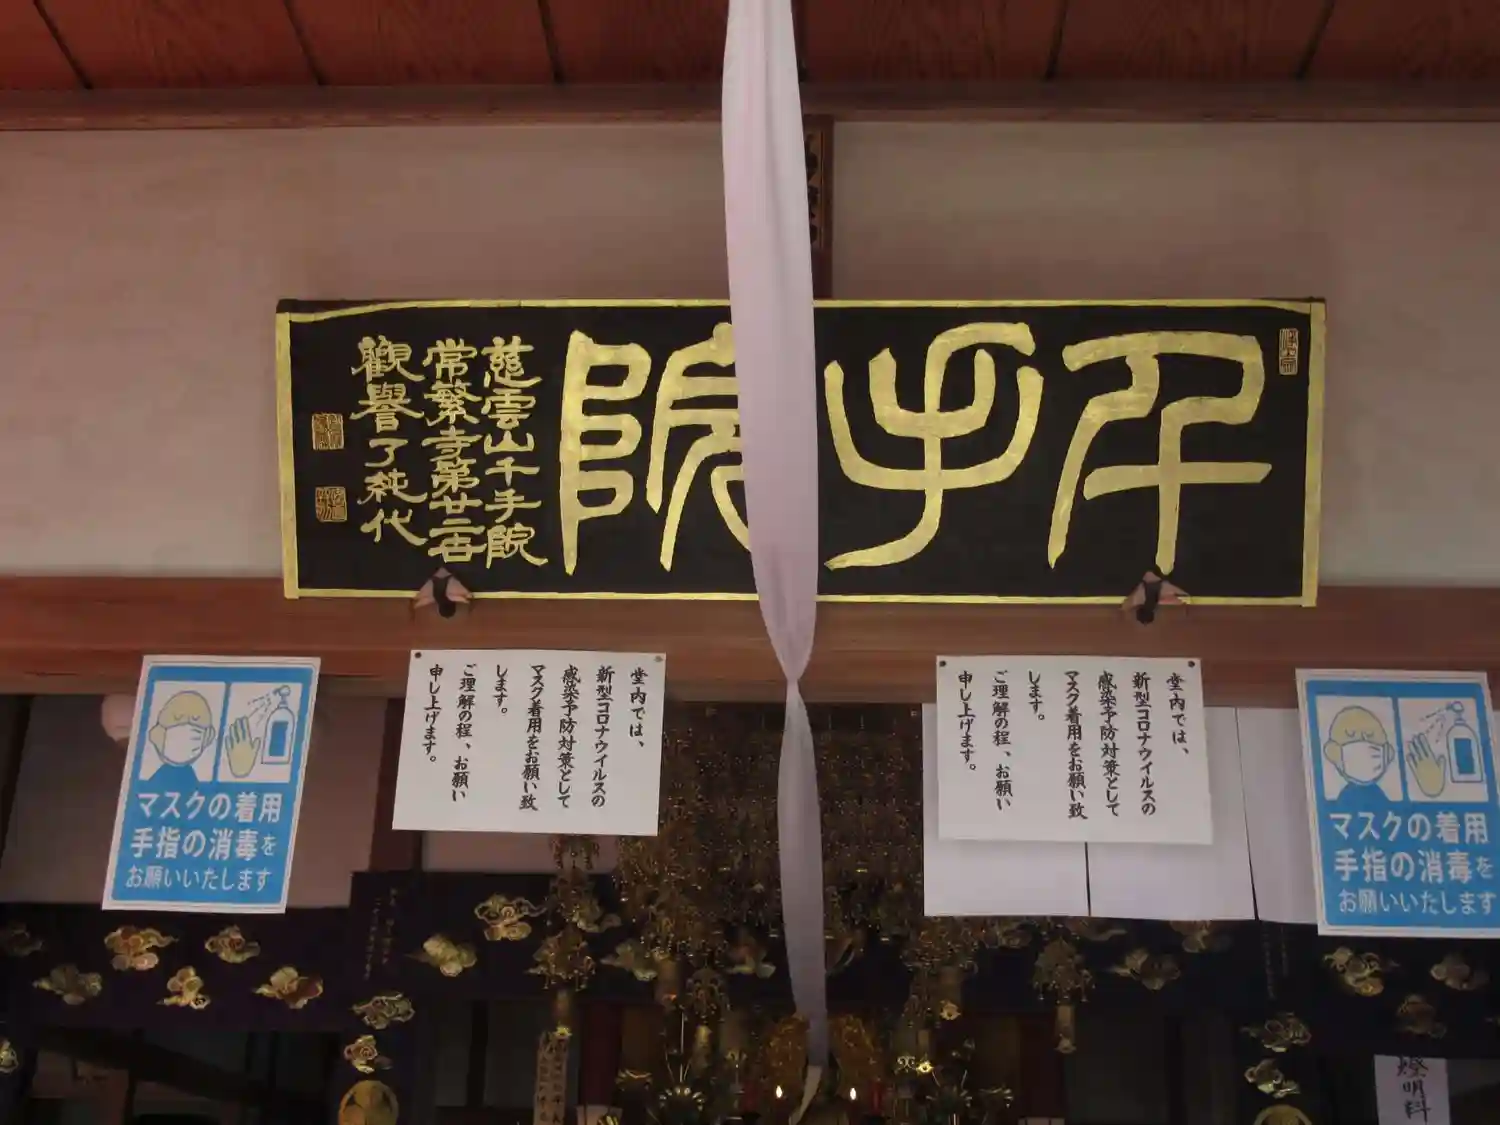 千手院
慈雲山千手院
常繁寺第廿二世
觀譽了純代
マスクの着用
手指の消毒を
お願いいたします
堂内では、
新型コロナウイルスの
感染予防対策として
マスク着用をお願い致
します。
ご理解の程、お願い
申し上げます。
堂内では、
新型コロナウイルスの
感染予防対策として
マスク着用をお願い致
します。
ご理解の程、お願い
申し上げます。
マスクの着用
手指の消毒を
お願いいたします
燈明料